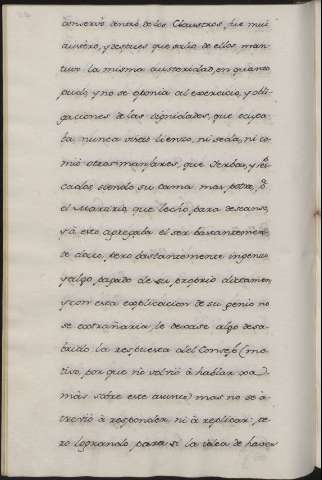 conservò dentro de los Claustros, fue mui
austero, y despues que salio de ellos man-
tuvo la misma austeridad, en quanto
pudo, y no se oponia al exercicio, y obli-
gaciones de las dignidades, que ocupa-
ba nunca vistiò lienzo, ni seda, ni co-
miò otros manjares, que Yerbas, y
siendo su cama mas potro,
el Martirio, que lecho, para descanso,
y à esto agregaba el ser bastantemen-
te docto, pero bastantemente ingenuo
y algo pagado de su proprio dictamen
y con esta explicacion de su genio no
se extrañaria le dexase algo desa-
brido la respuesta del Consejo (mo-
tivo, por que no volviò à hablar
màs sobre este asunto) mas no se à-
treviò à responder, ni à replicar; pe-
ro logrando para sì la idea de haver